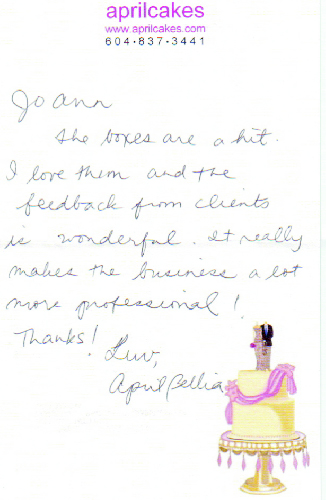 aprilcakes
www.aprilcakes.com
604·837·3441
Jo ann
The boxes are a hit.
I love them and the
feedback from clients
is wonderful. It really
makes the business a lot
more professional!
Thanks!
Luv,
April Pellia